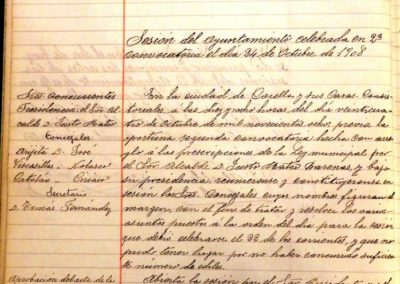 Sesión del Ayuntamiento celebrada en 2ª
convocatoria el día 24 de Octubre de 1908
Sres. concurrentes
Presidencia: el Sor. Al-
calde D. Justo Mateo
Concejales
D. José
Nolasco
Catalán Ciriaco
Secretario
D. Tomás Fernández
En la ciudad de Corella y sus Casas Consis-
toriales, a las diez y ocho horas del día veinticua-
tro de Octubre de mil novecientos ocho, previa la
oportuna segunda convocatoria hecha con arre-
glo a las prescripciones de la Ley municipal por
el Sor. Alcalde D. Justo Mateo y bajo
su presidencia reunieronse y constituyeronse en
sesión los Sres. Concejales cuyos nombres figuran al
margen, con el fin de tratar y resolver los varios
asuntos puestos a la orden del día para la sesión
que debió celebrarse el 22 de los corrientes, y que no
pudo tener lugar por no haber concurrido suficien-
te número de ediles.
Aprobación del acta de la
Abierta la sesión por el Sor. Presidente